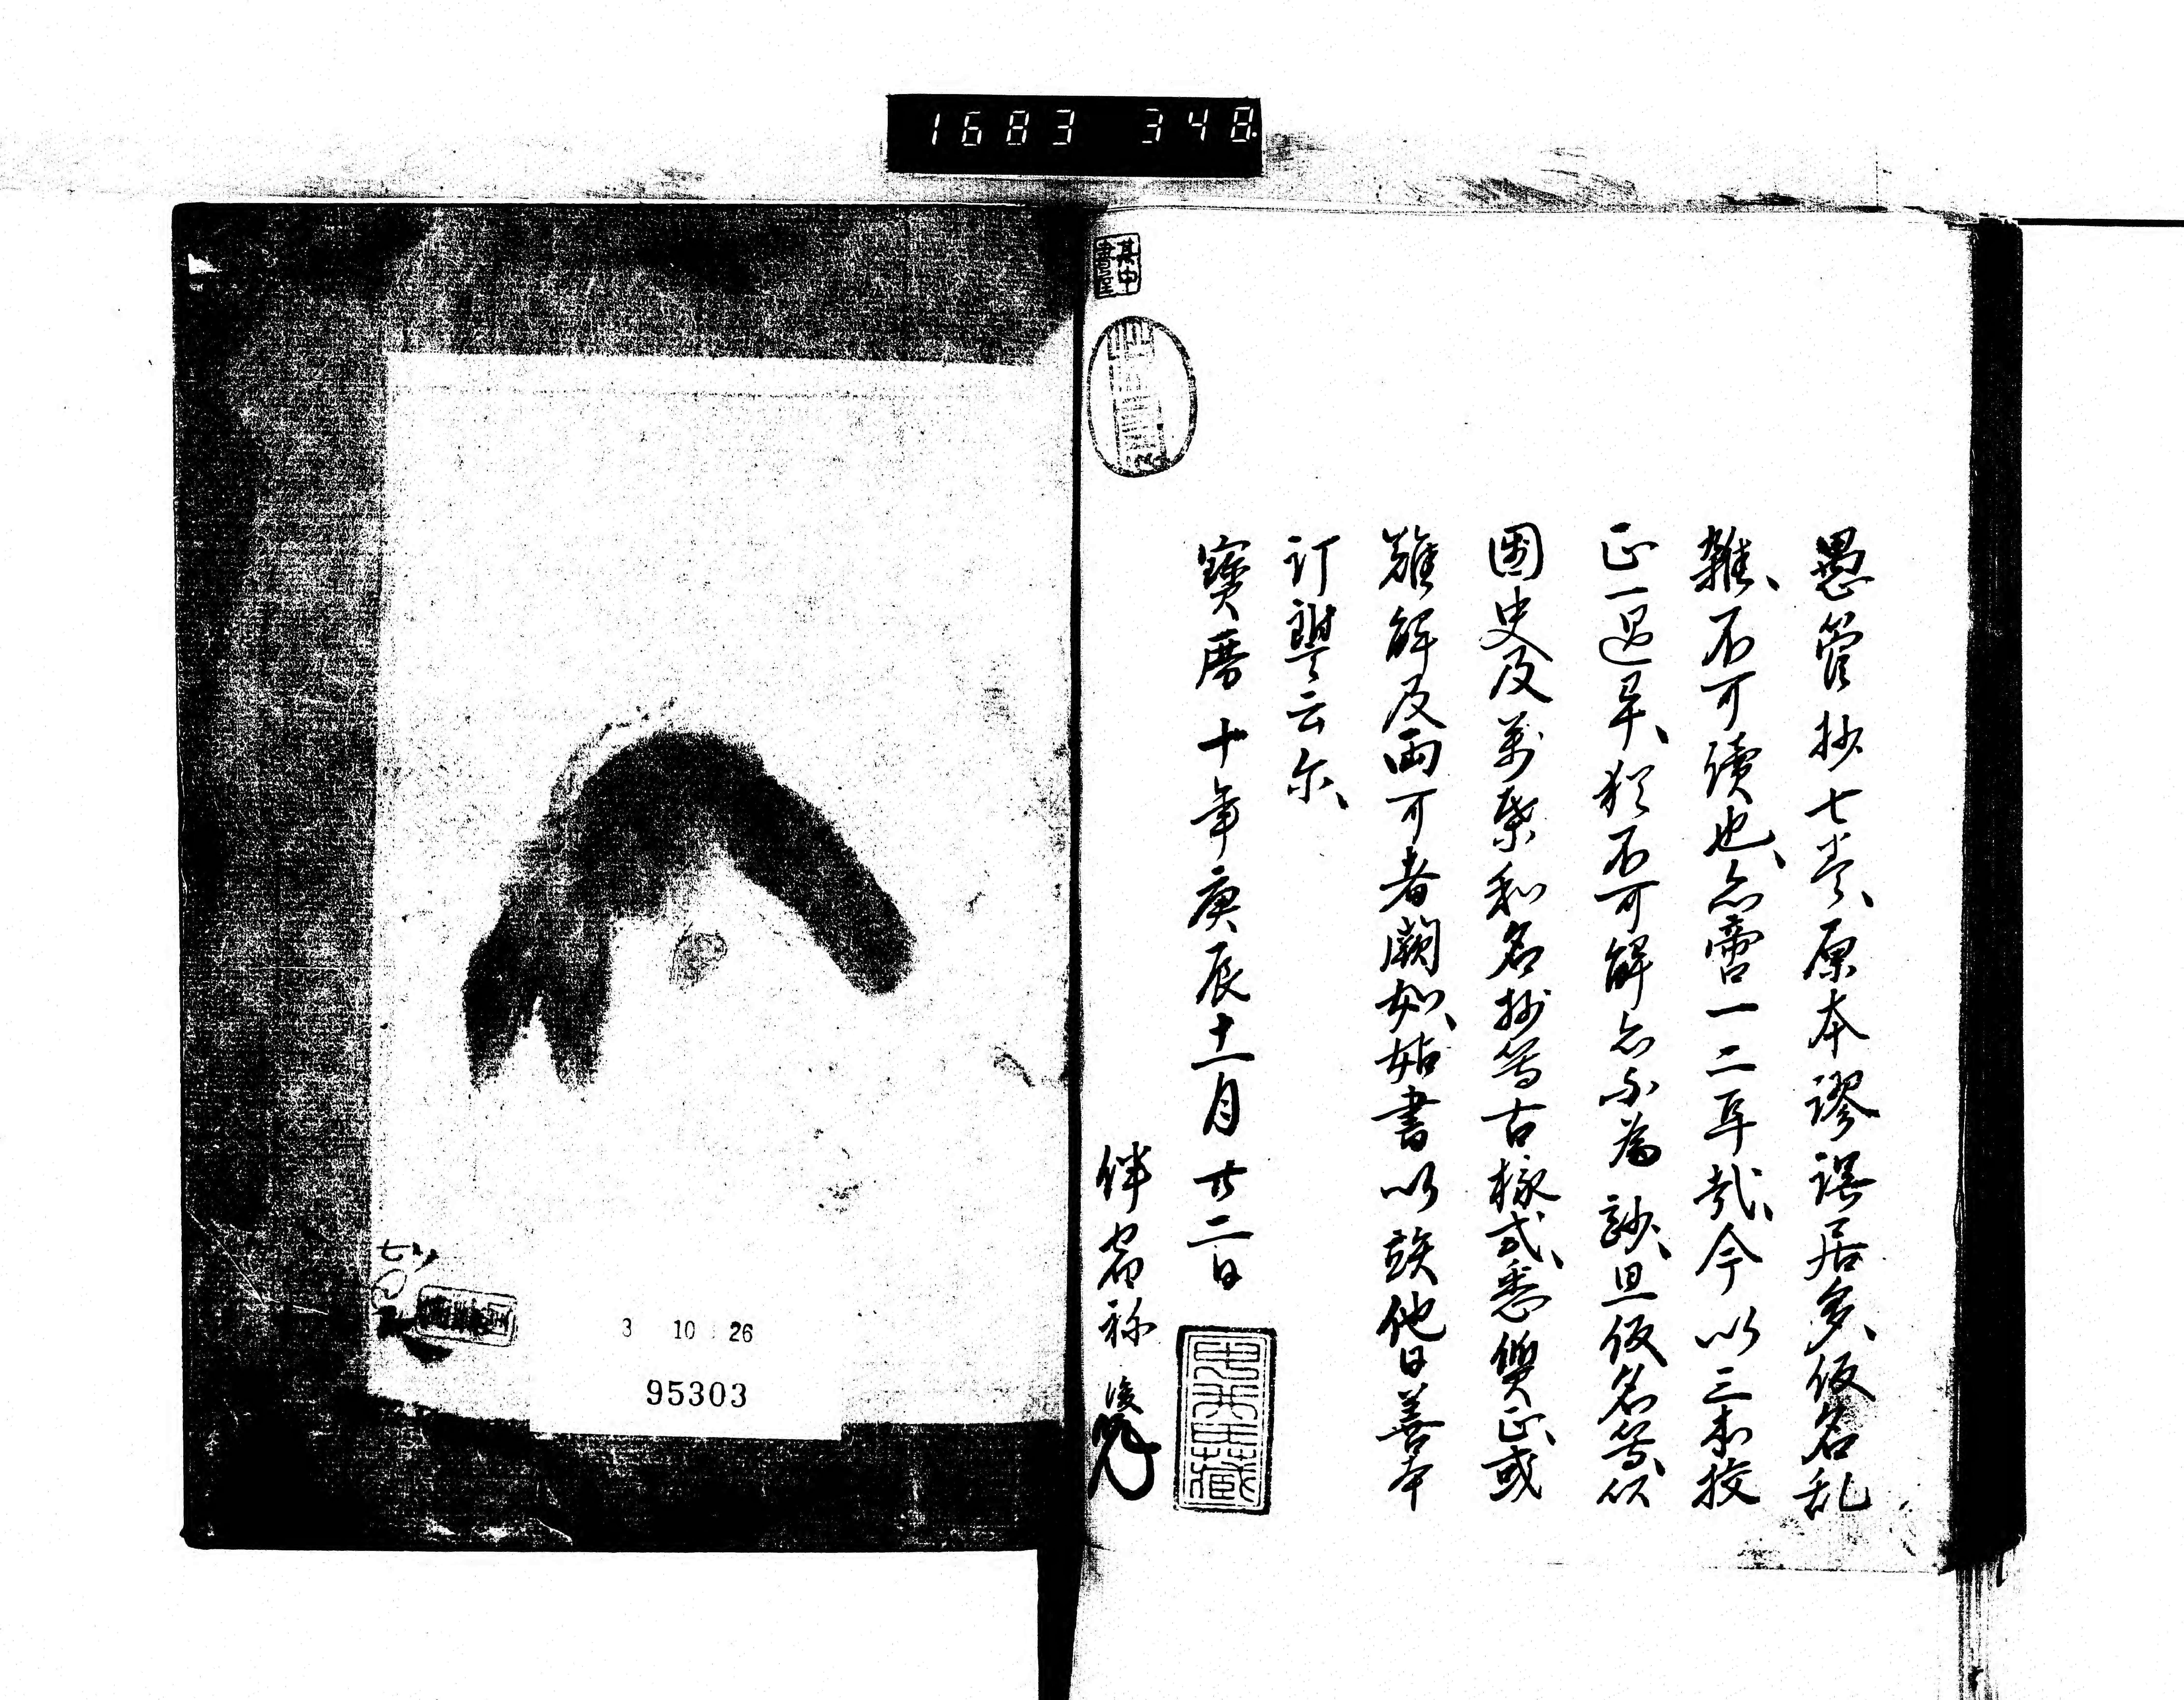 1683 348
愚管抄七巻、原本謬誤居多、仮名乱
雑、不可読也、忝啻一二耳哉、今以三本挍
正一過畢、猶不可解忝不為尠、且仮名等以
国史及萬葉和名抄等古様式、悉質正、或
難解及両可者闕如、姑書以竢他日善本
訂讐云尓、
寳暦十年庚辰十一月廿二日
伴宿祢
3 10 26
95303